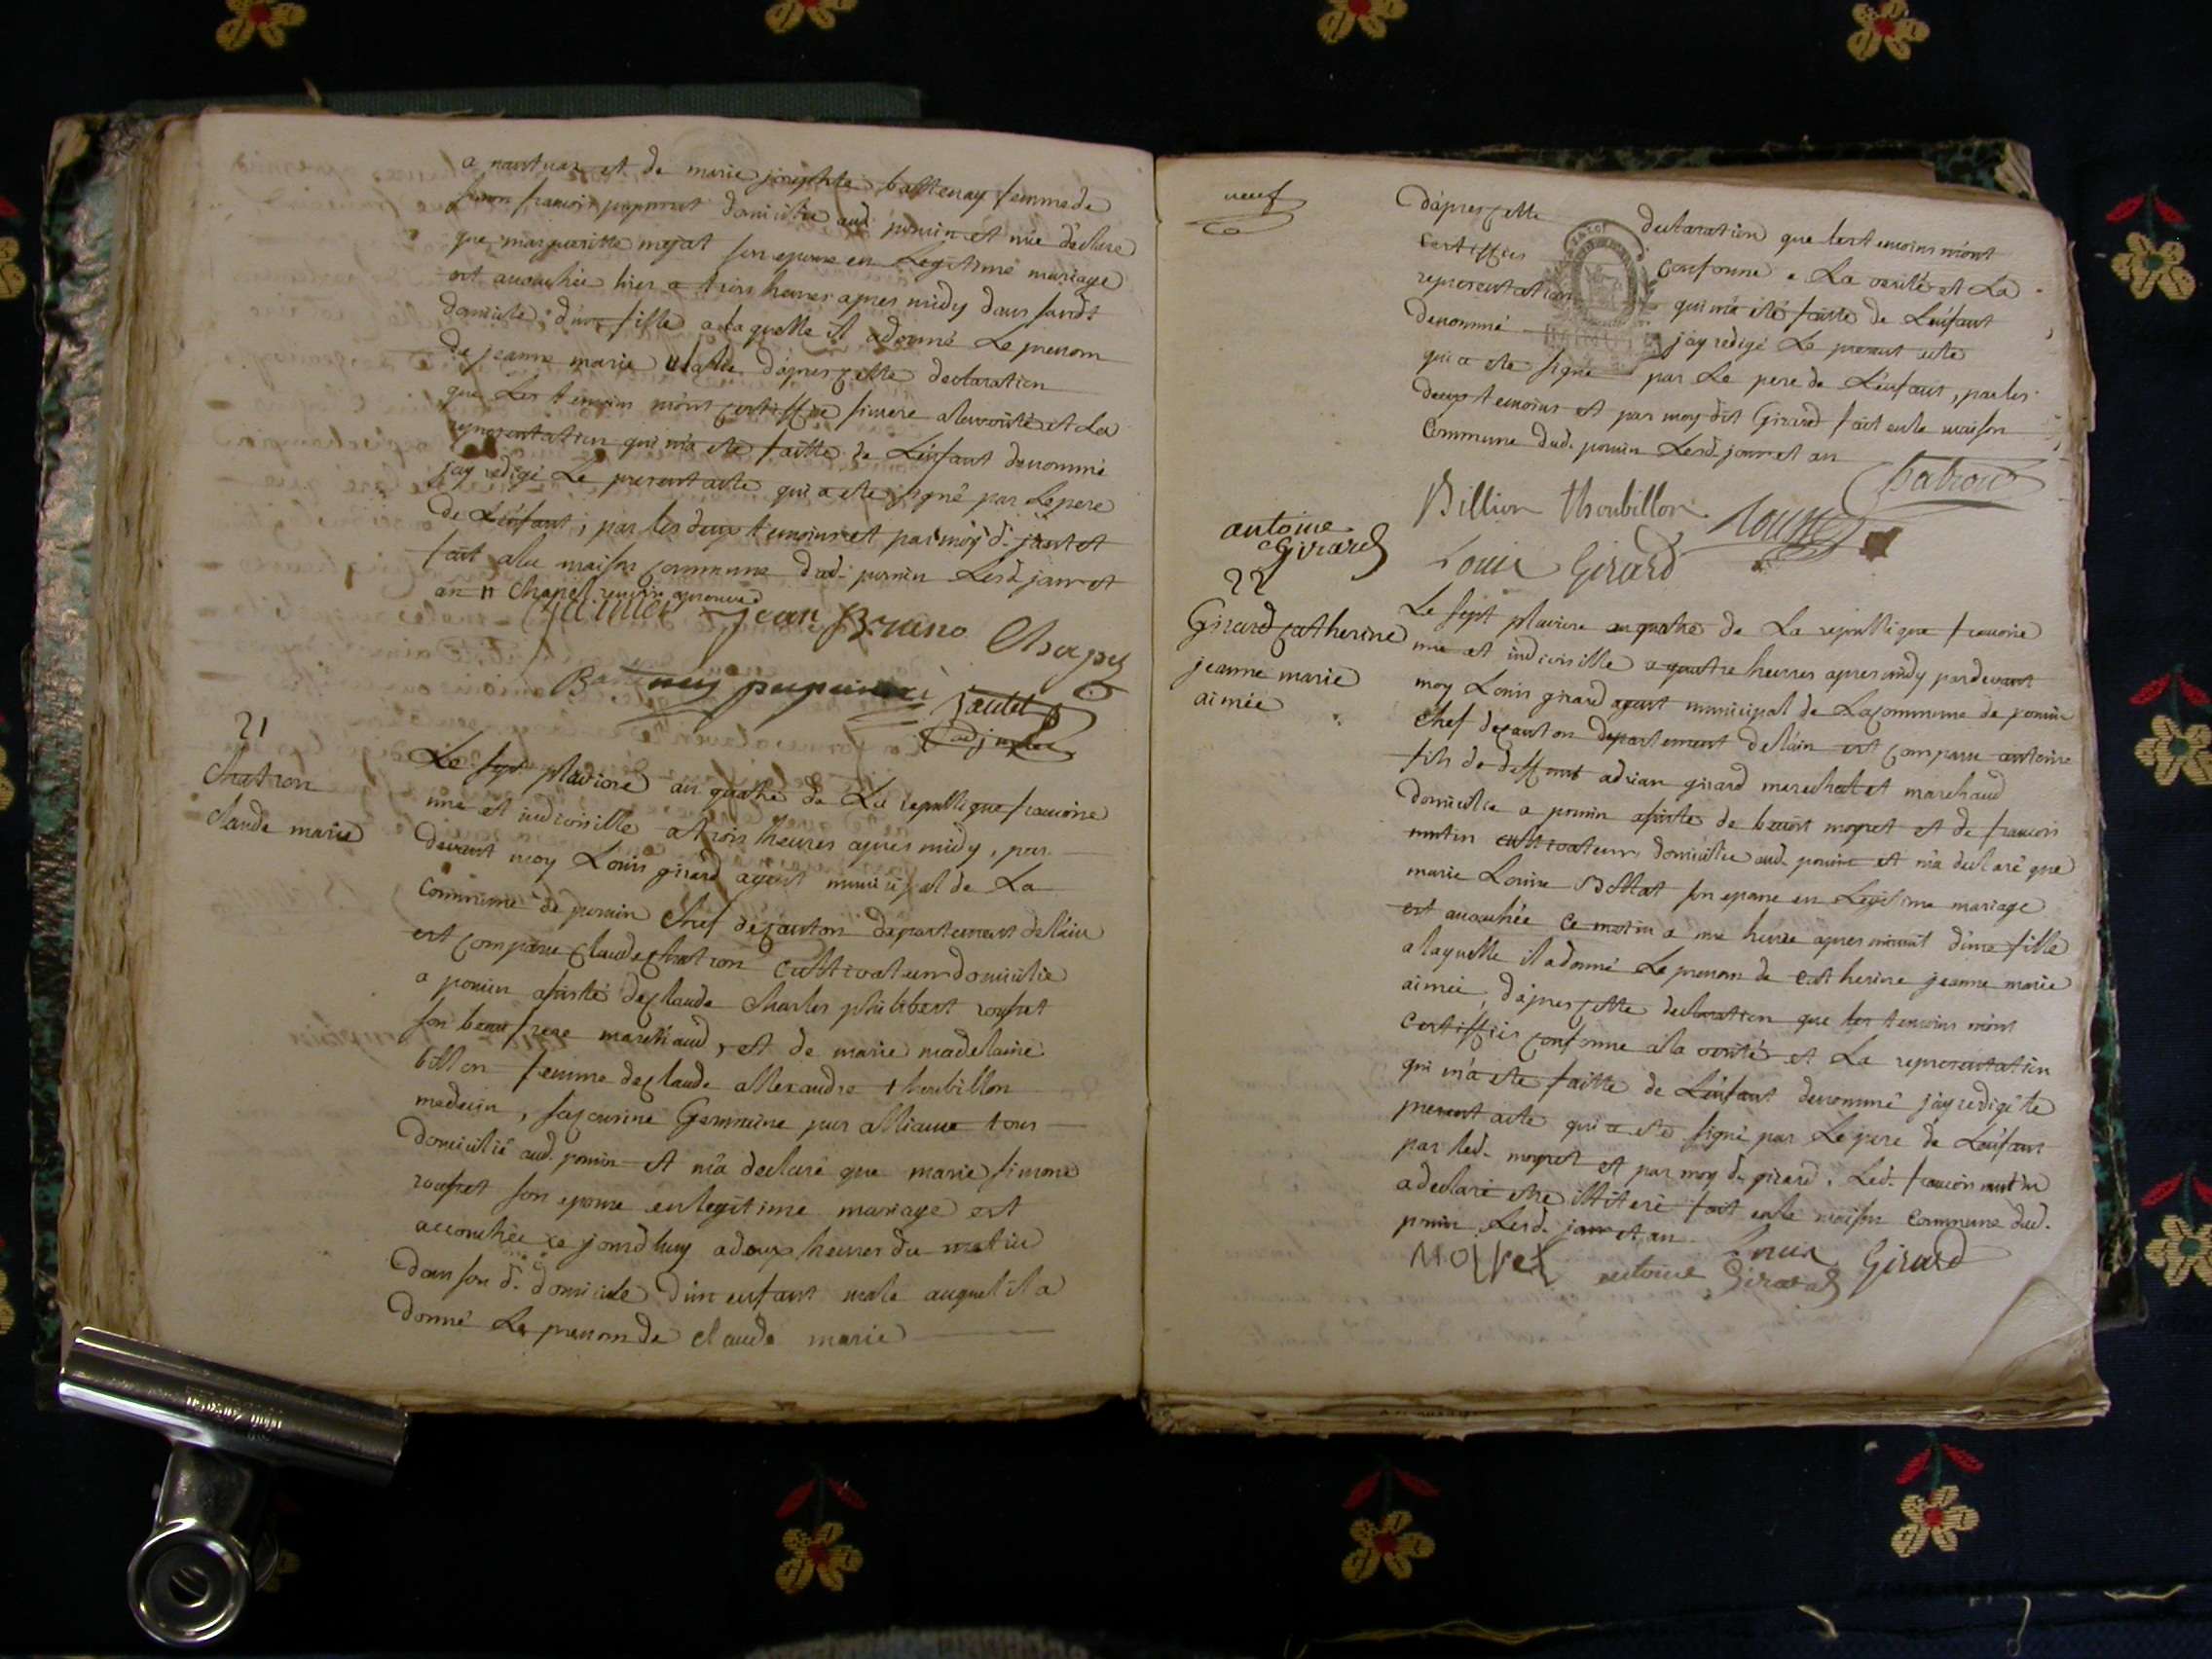 a nantua et de marie josephte battenay femme de
simon francois pupunat domicilie aud. poncin et m'a déclaré
que margueritte mejat son epouse en Legitime mariage
est accouchée hier a trois heures apres midy dans sondt
domicile d'une fille a laquelle il a donné Le prenom
de jeanne marie d'apres cette declaration
que Les temoins m'ont certiffiée sincere a la verité et La
representation qui m'a ete faitte de L'enfant denommé
j'ay redigé Le present acte qui a ete signé par Le pere
de L'enfant, par les deux temoins et par moy d. jantet
fait a la maison commune dud. poncin Lesd. jour et
an
jean Bruno
Battenay pupunat
jantet
adjoint
21
Chatron
Claude marie
Le sept pluviose an quatre de La republique francoise
une et indivisible a trois heures apres midy, par
devant moy Louis girard agent municipal de La
commune de poncin Chef de canton departement de l'ain
est comparu claude chatron cultivateur domicilie
a poncin assisté de claude Charles philibert rouset
son beau frere marchaud, et de marie madelaine
billon femme de claude allexandre thoubillon
medecin, sa cousine Germaine par alliance tous
domicilié aud. poncin et m'a declaré que marie simone
rouset son epouse en legitime mariage est
accouchée ce jourdhuy a deux heures du matin
dans son d. domicile d'un enfant male auquel il a
donné Le prenom de claude marie
neuf
d'apres cette declaration que les temoins m'ont
certiffiés conforme a La verité et La
representation qui m'a été faitte de L'enfant
denommé j'ay redigé Le present acte
qui a ete signé par Le pere de L'enfant, par les
deux temoins et par moy dit Girard fait en la maison
Commune dud. poncin Lesd. jour et an
Chatron
Billion thoubillon
Louis Girard
antoine
Girard
22
Girard catherine
jeanne marie
aimée
Le sept pluviose an quatre de La republique francoise
une et indivisible a quatre heures apres midy pardevant
moy Louis girard agent municipal de La commune de poncin
chef de canton departement de l'ain est comparu antoine
fils de deffunt adrian girard marechal et marchaud
domicilie a poncin assiste de benoit moyret et de francois
mutin cultivateurs domicilie aud. poncin et m'a declaré que
marie Louise Bollat son epouse en Legitime mariage
est accouchée ce matin a une heure apres minuit d'une fille
a laquelle il a donné Le prenom de catherine jeanne marie
aimée, d'apres cette declaration que les temoins m'ont
certiffiés conforme a la verité et La representation
qui m'a ete faitte de L'enfant denommé j'ay redigé le
present acte qui a ete signé par Le pere de L'enfant
par led. moyret et par moy d. girard. Led. francois mutin
a declaré etre illiteré fait en la maison commune dud.
poncin Lesd. jour et an
Moyret antoine Girard Louis Girard